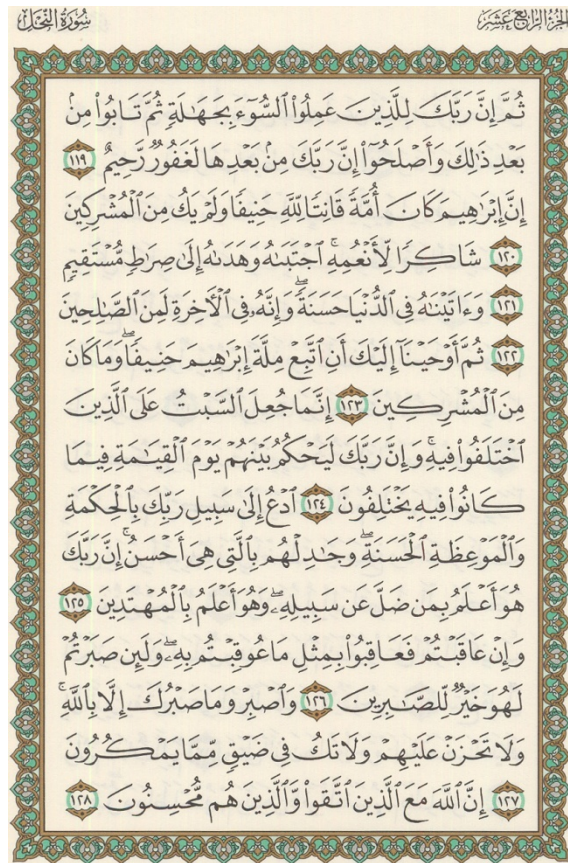 الجزء الرابع عشر
سورة النحل
ثُمَّ إِنَّ رَبَّكَ لِلَّذِينَ عَمِلُوا۟ ٱلسُّوٓءَ بِجَهَـٰلَةٍ ثُمَّ تَابُوا۟ مِنۢ
بَعْدِ ذَٰلِكَ وَأَصْلَحُوٓا۟ إِنَّ رَبَّكَ مِنۢ بَعْدِهَا لَغَفُورٌ رَّحِيمٌ ١١٩
إِنَّ إِبْرَٰهِيمَ كَانَ أُمَّةً قَانِتًا لِّلَّهِ حَنِيفًا وَلَمْ يَكُ مِنَ ٱلْمُشْرِكِينَ
١٢٠ شَاكِرًا لِّأَنْعُمِهِ ۚ ٱجْتَبَىٰهُ وَهَدَىٰهُ إِلَىٰ صِرَٰطٍ مُّسْتَقِيمٍ
١٢١ وَءَاتَيْنَـٰهُ فِى ٱلدُّنْيَا حَسَنَةً ۖ وَإِنَّهُۥ فِى ٱلْـَٔاخِرَةِ لَمِنَ ٱلصَّـٰلِحِينَ
١٢٢ ثُمَّ أَوْحَيْنَآ إِلَيْكَ أَنِ ٱتَّبِعْ مِلَّةَ إِبْرَٰهِيمَ حَنِيفًا ۖ وَمَا كَانَ
مِنَ ٱلْمُشْرِكِينَ ١٢٣ إِنَّمَا جُعِلَ ٱلسَّبْتُ عَلَى ٱلَّذِينَ
ٱخْتَلَفُوا۟ فِيهِ ۚ وَإِنَّ رَبَّكَ لَيَحْكُمُ بَيْنَهُمْ يَوْمَ ٱلْقِيَـٰمَةِ فِيمَا
كَانُوا۟ فِيهِ يَخْتَلِفُونَ ١٢٤ ٱدْعُ إِلَىٰ سَبِيلِ رَبِّكَ بِٱلْحِكْمَةِ
وَٱلْمَوْعِظَةِ ٱلْحَسَنَةِ ۖ وَجَـٰدِلْهُم بِٱلَّتِى هِىَ أَحْسَنُ ۚ إِنَّ رَبَّكَ
هُوَ أَعْلَمُ بِمَن ضَلَّ عَن سَبِيلِهِۦ ۖ وَهُوَ أَعْلَمُ بِٱلْمُهْتَدِينَ ١٢٥
وَإِنْ عَاقَبْتُمْ فَعَاقِبُوا۟ بِمِثْلِ مَا عُوقِبْتُم بِهِۦ ۖ وَلَئِن صَبَرْتُمْ
لَهُوَ خَيْرٌ لِّلصَّـٰبِرِينَ ١٢٦ وَٱصْبِرْ وَمَا صَبْرُكَ إِلَّا بِٱللَّهِ ۚ
وَلَا تَحْزَنْ عَلَيْهِمْ وَلَا تَكُ فِى ضَيْقٍ مِّمَّا يَمْكُرُونَ
١٢٧ إِنَّ ٱللَّهَ مَعَ ٱلَّذِينَ ٱتَّقَوا۟ وَّٱلَّذِينَ هُم مُّحْسِنُونَ ١٢٨